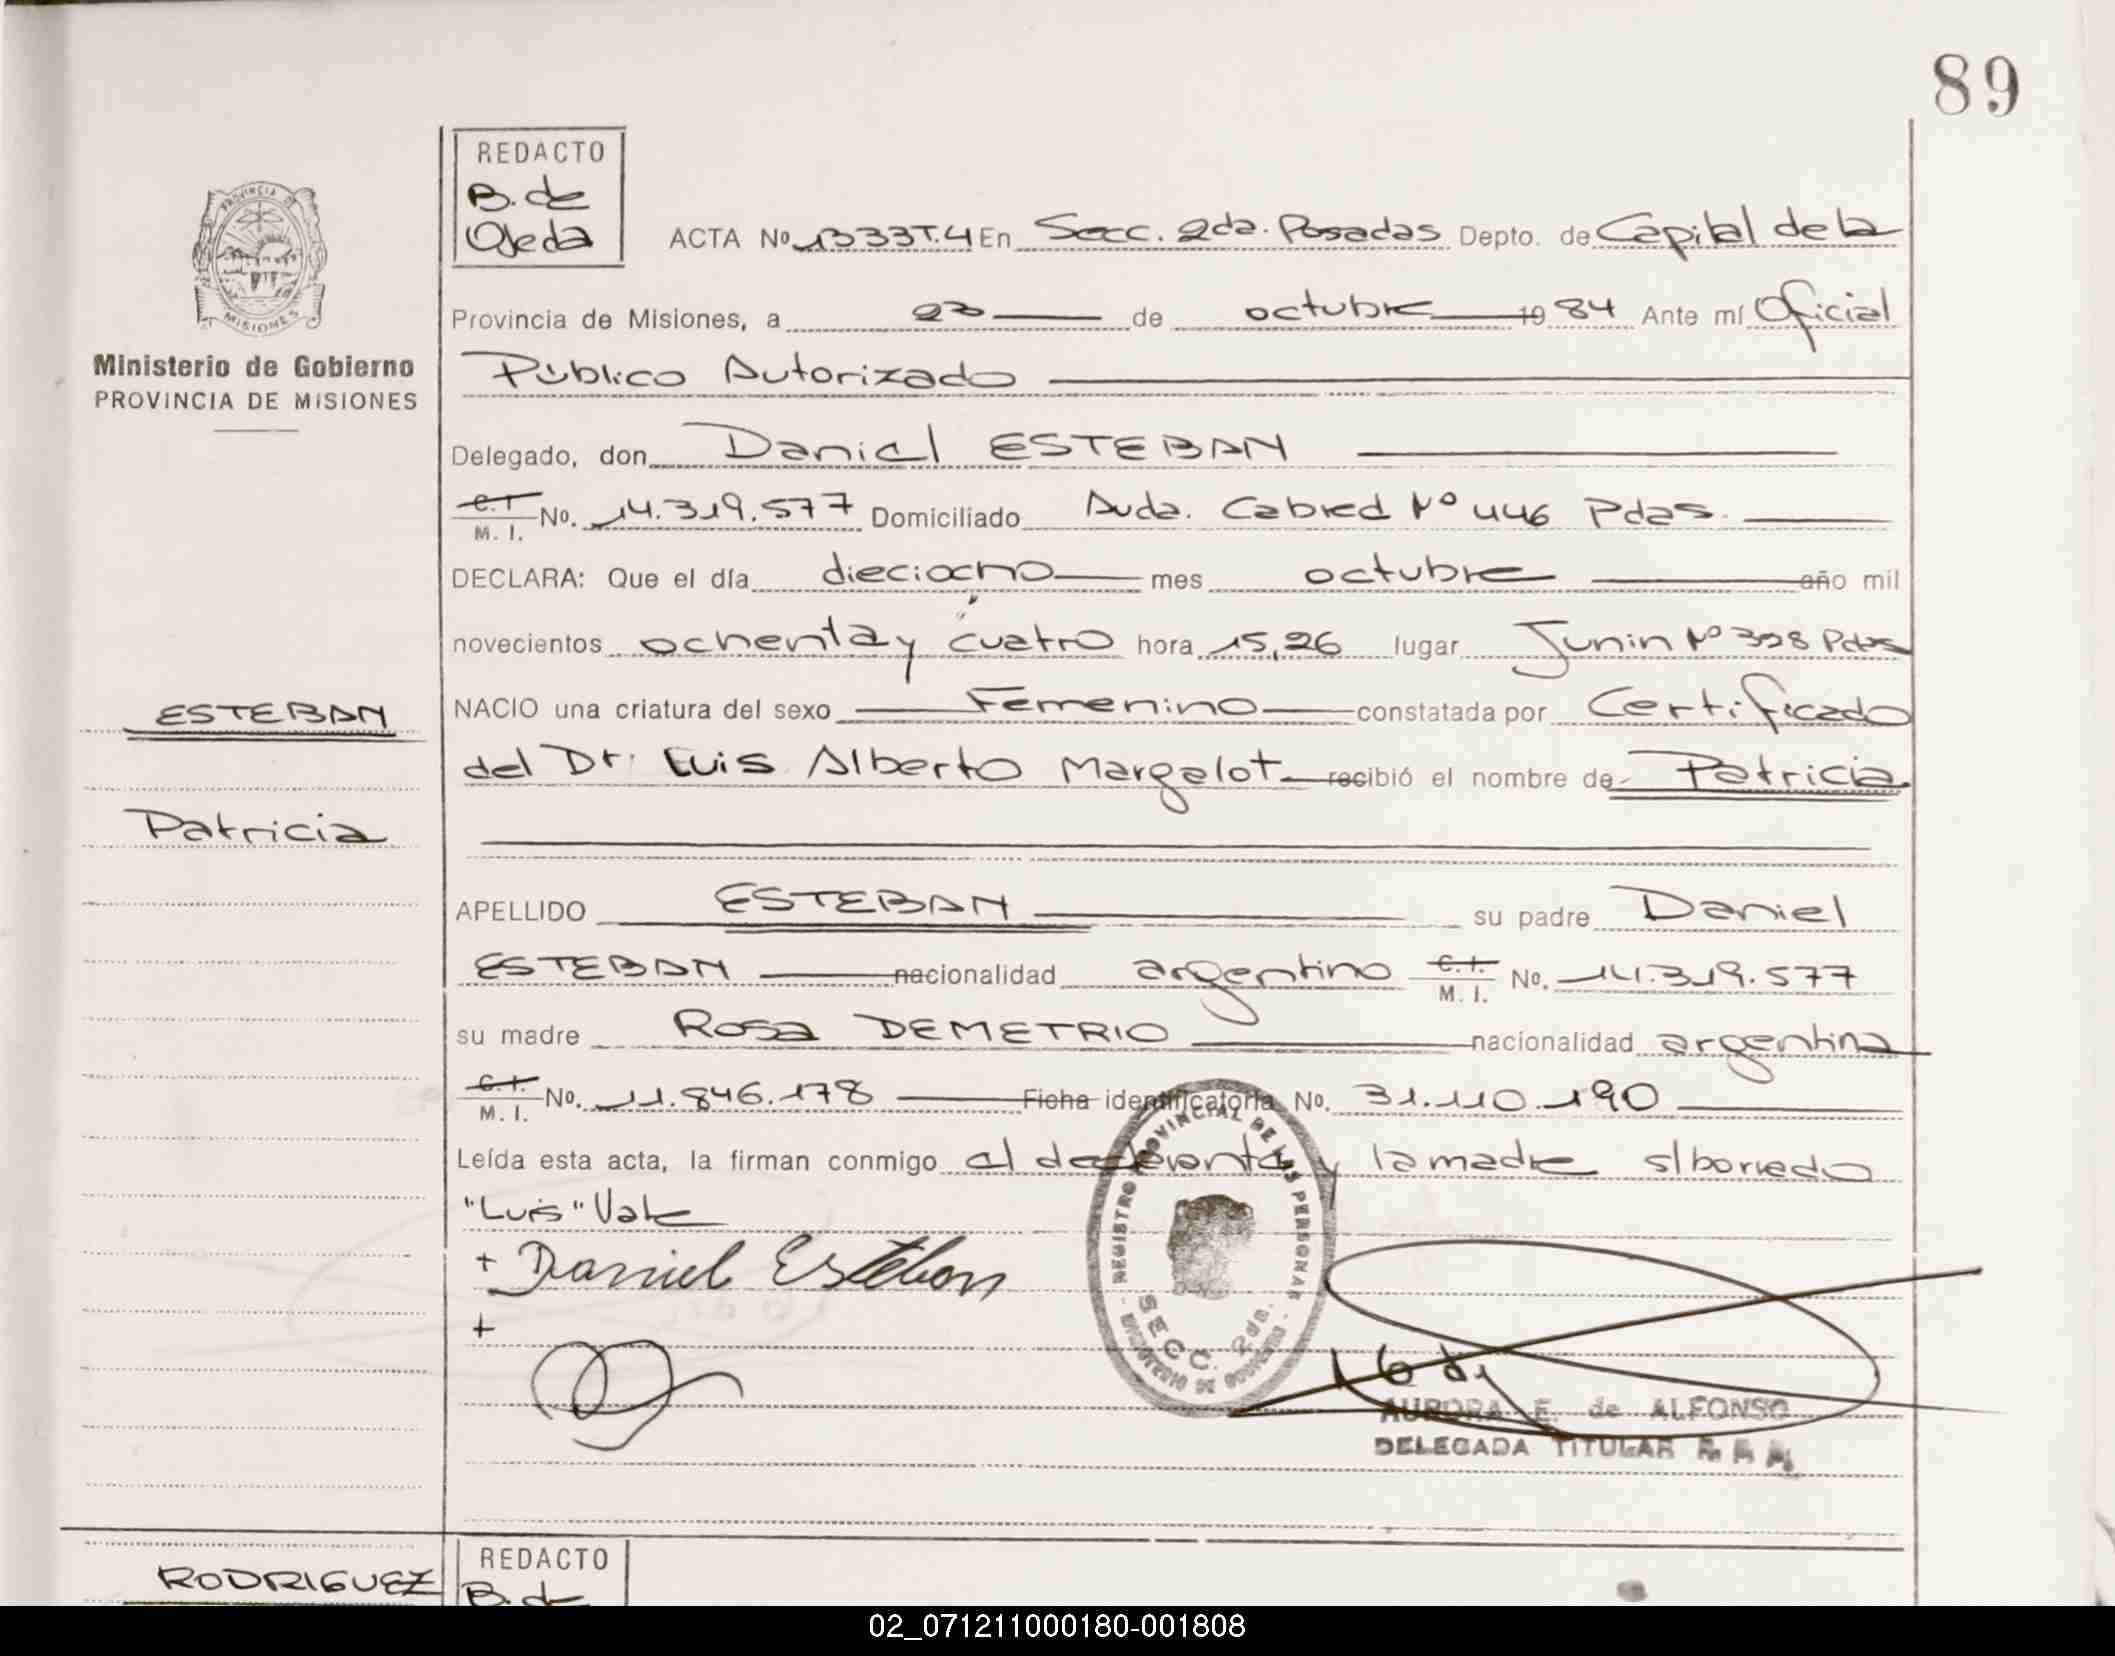 89
REDACTO
B. de
Ojeda
PROVINCIA DE
MISIONES
Ministerio de Gobierno
PROVINCIA DE MISIONES
ACTA Nº 1333T.4 En Secc. 2da. Posadas Depto. de Capital de la
Provincia de Misiones, a 23 de octubre 1984 Ante mí Oficial
Público Autorizado
Delegado, don Daniel ESTEBAN
C.I. M. I. No. 14.319.577 Domiciliado Avda. Cabred Nº 446 Pdas.
DECLARA: Que el día dieciocho mes octubre año mil
novecientos ochenta y cuatro hora 15,26 lugar Junin Nº 398 Pdas
ESTEBAN
NACIO una criatura del sexo Femenino constatada por Certificado
del Dr. Luis Alberto Margalot recibió el nombre de Patricia
Patricia
APELLIDO ESTEBAN su padre Daniel
ESTEBAN nacionalidad argentino C.I. M. I. No. 14.319.577
su madre Rosa DEMETRIO nacionalidad argentina
C.I. M. I. No. 11.846.178 Ficha identificatoria No. 31.110.190
Leída esta acta, la firman conmigo el declarante y la madre s/borrado
"Luis" Vale
+ Daniel Esteban
+
REGISTRO PROVINCIAL DE LAS PERSONAS
SECC. 2da.
MINISTERIO DE GOBIERNO
AURORA E. de ALFONSO
DELEGADA TITULAR
RODRIGUEZ
REDACTO
B. de
02_071211000180-001808